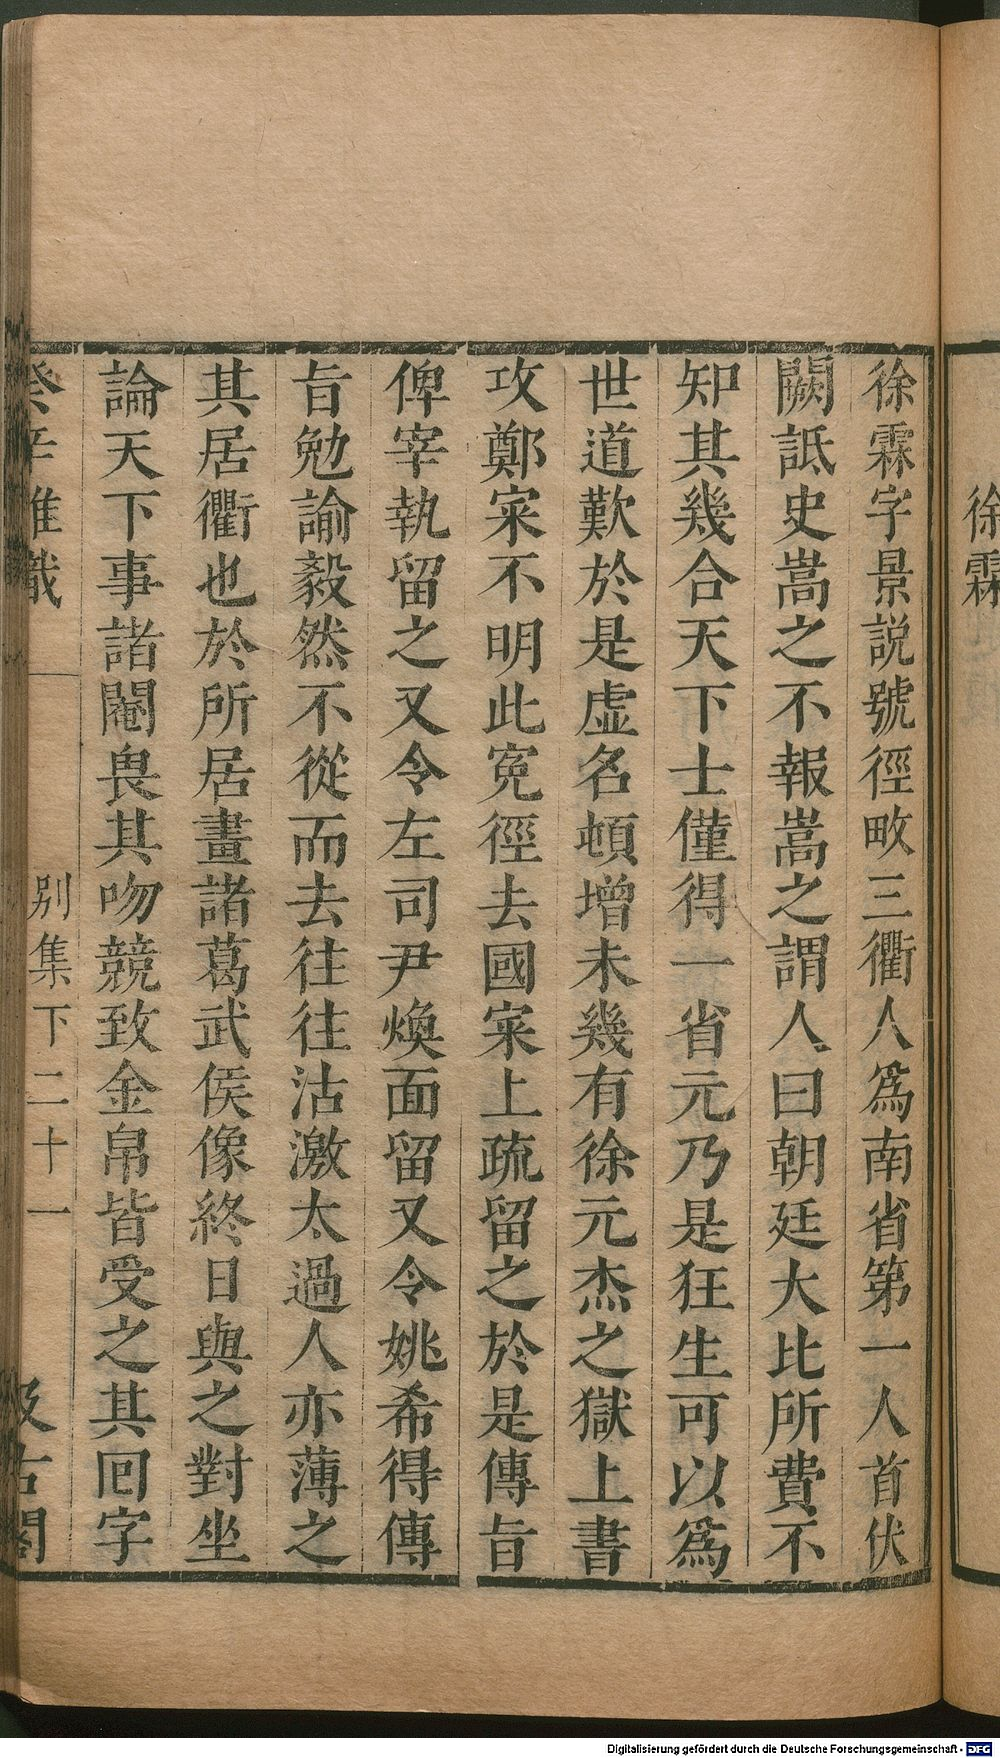 徐霖
徐霖字景説號徑畋三衢人爲南省第一人首伏
闕詆史嵩之不報嵩之謂人曰朝廷大比所費不
知其幾合天下士僅得一省元乃是狂生可以爲
世道歎於是虚名頓增未幾有徐元杰之獄上書
攻鄭寀不明此寃徑去國寀上疏留之於是傳旨
俾宰執留之又令左司尹煥面留又令姚希得傳
旨勉諭毅然不從而去往往沽激太過人亦薄之
其居衢也於所居畫諸葛武侯像終日與之對坐
論天下事諸閹畏其吻競致金帛皆受之其囘字
癸辛雜識 別集下二十一 汲古閣
Digitalisierung gefördert durch die Deutsche Forschungsgemeinschaft - DFG